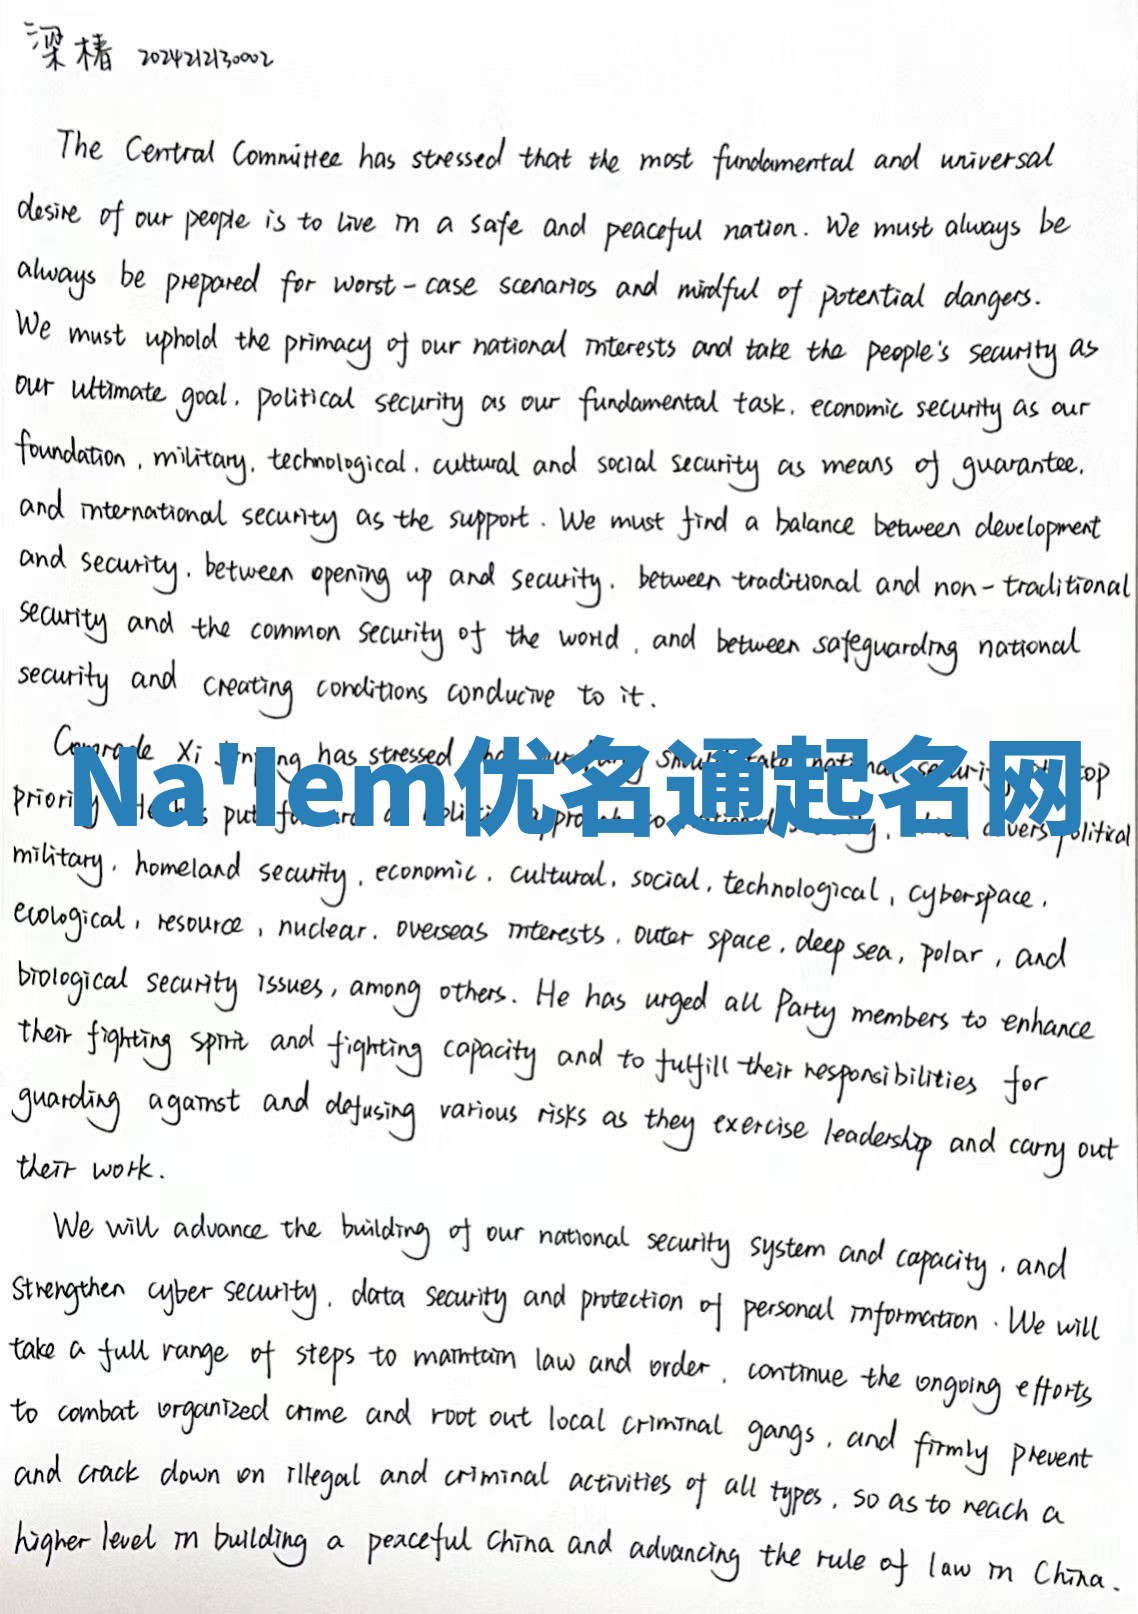 梁椿 2024212130002
The Central Committee has stressed that the most fundamental and universal
desire of our people is to live in a safe and peaceful nation. We must always be
always be prepared for worst-case scenarios and mindful of potential dangers.
We must uphold the primacy of our national interests and take the people's security as
our ultimate goal, political security as our fundamental task, economic security as our
foundation, military, technological, cultural and social security as means of guarantee,
and international security as the support. We must find a balance between development
and security, between opening up and security, between traditional and non-traditional
security and the common security of the world, and between safeguarding national
security and creating conditions conducive to it.
Comrade Xi Jinping has stressed national security top
Na'Iem优名通起名网
priority put political
military, homeland security, economic, cultural, social, technological, cyberspace,
ecological, resource, nuclear, overseas interests, outer space, deep sea, polar, and
biological security issues, among others. He has urged all Party members to enhance
their fighting spirit and fighting capacity and to fulfill their responsibilities for
guarding against and defusing various risks as they exercise leadership and carry out
their work.
We will advance the building of our national security system and capacity, and
strengthen cyber security, data security and protection of personal information. We will
take a full range of steps to maintain law and order, continue the ongoing efforts
to combat organized crime and root out local criminal gangs, and firmly prevent
and crack down on illegal and criminal activities of all types, so as to reach a
higher level in building a peaceful China and advancing the rule of law in China.